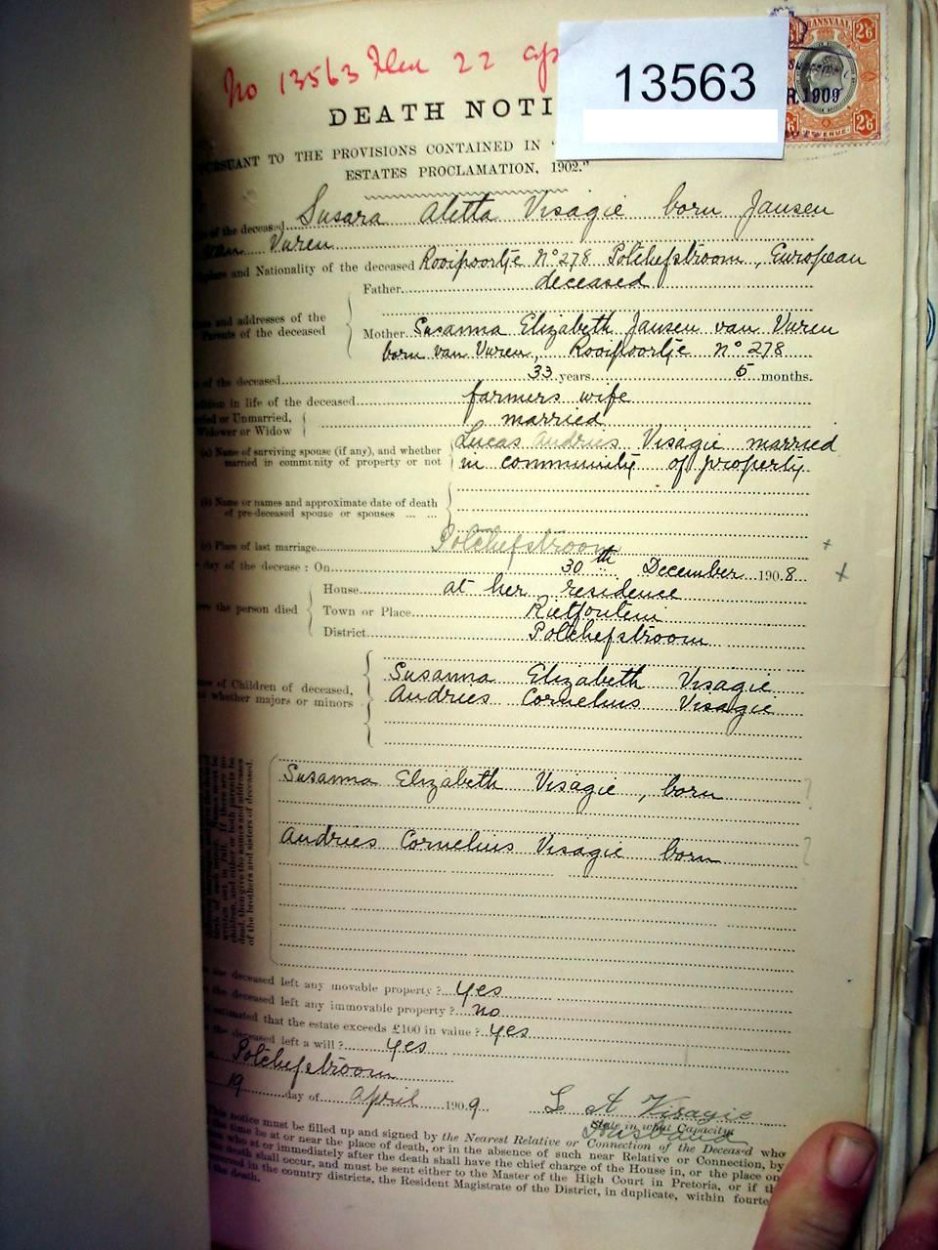 No 13563 22
13563
TRANSVAAL
2/6
R.1909
2/6 2/6
REVENUE
DEATH NOTI
PURSUANT TO THE PROVISIONS CONTAINED IN "
ESTATES PROCLAMATION, 1902."
of the deceased Susara Aletta Visagie born Jansen
van Vuren
and Nationality of the deceased Rooipoortje No 278 Potchefstroom, European
Father deceased
and addresses of the
Parents of the deceased
Mother Susanna Elizabeth Jansen van Vuren
born van Vuren, Rooipoortje No 278
of the deceased 33 years 5 months.
in life of the deceased farmers wife
or Unmarried,
Widower or Widow
married
(a) Name of surviving spouse (if any), and whether
married in community of property or not
Lucas Andries Visagie married
in community of property
(b) Name or names and approximate date of death
of pre-deceased spouse or spouses ... ...
(c) Place of last marriage Potchefstroom
day of the decease: On 30th December 1908
the person died
House at her residence
Town or Place Rietfontein
District Potchefstroom
of Children of deceased,
whether majors or minors
Susanna Elizabeth Visagie
Andries Cornelius Visagie
written out in full. If there are no
children and either or both parents be
dead, then give the names and addresses
of the brothers and sisters of deceased.
Susanna Elizabeth Visagie, born ?
Andries Cornelius Visagie born ?
the deceased left any movable property? Yes
the deceased left any immovable property? no
estimated that the estate exceeds £100 in value? Yes
the deceased left a will? Yes
Potchefstroom
19 day of April 1909
L A Visagie
State in what Capacity
Husband
This notice must be filled up and signed by the Nearest Relative or Connection of the Deceased who
the time be at or near the place of death, or in the absence of such near Relative or Connection, by
who at or immediately after the death shall have the chief charge of the House in, or the place on
death shall occur, and must be sent either to the Master of the High Court in Pretoria, or if th
in the country districts, the Resident Magistrate of the District, in duplicate, within fourte
the death.